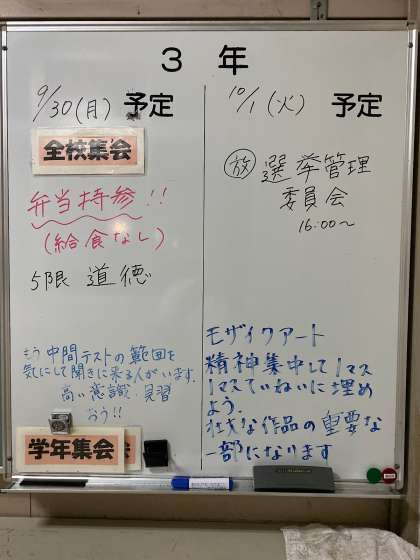 3 年
9/30(月) 予定
全校集会
弁当持参!!
(給食なし)
5限 道徳
もう中間テストの範囲を
気にして聞きに来る人がいます.
高い意識.見習
おう!!
学年集会
10/1(火) 予定
放 選挙管理
委員会
16:00~
モザイクアート
精神集中して1マス
1マスていねいに埋め
よう.
壮大な作品の重要な
一部になります